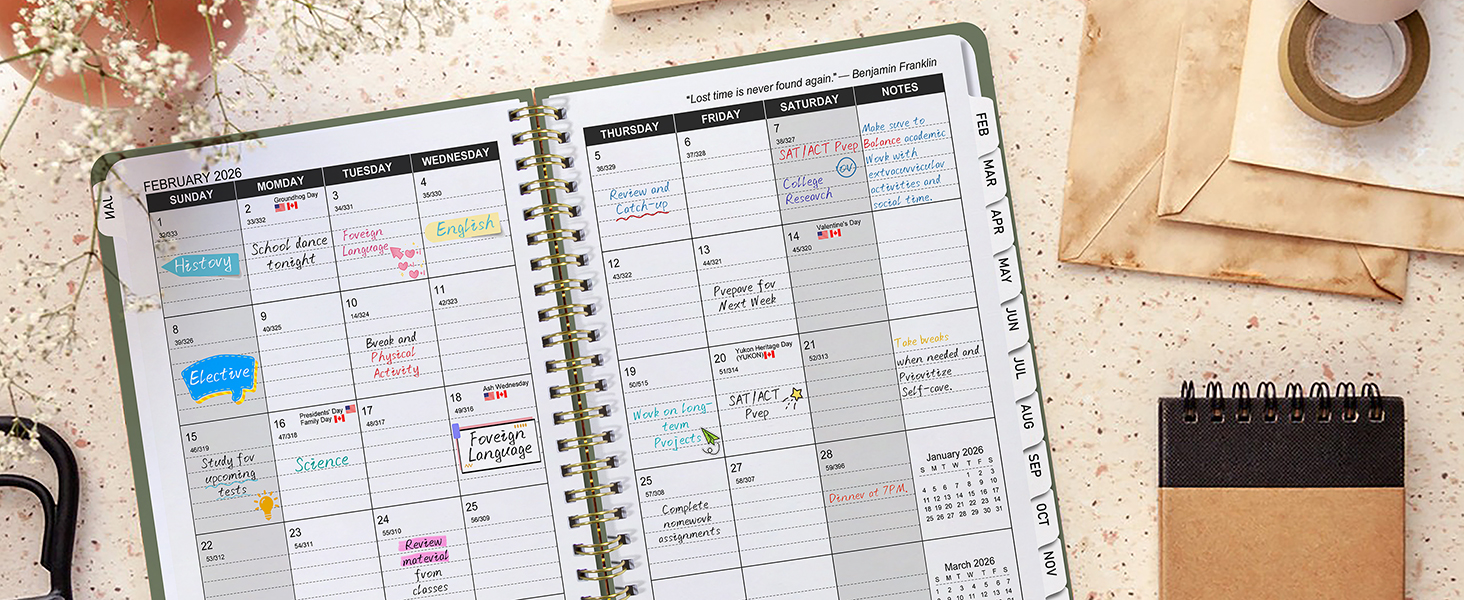 FEBRUARY 2026
SUNDAY
MOMDAY
TUESDAY
WEDNESDAY
1
32/333
History
2
Groundhog Day
33/332
School dance
tonight
3
34/331
Foreign
Language
4
35/330
English
8
39/326
Elective
9
40/325
10
14/324
Break and
Physical
Activity
11
42/323
15
46/319
Study for
upcoming
tests
16
Presidents' Day
Family Day
47/318
Science
17
48/317
18
Ash Wednesday
49/316
Foreign
Language
22
53/312
23
54/311
24
55/310
Review
material
from
classes
25
56/309
"Lost time is never found again."— Benjamin Franklin
THURSDAY
FRIDAY
SATURDAY
NOTES
5
36/329
Review and
Catch-up
6
37/328
7
38/327
SAT/ACT Prep
or
College
Research
Make sure to
Balance academic
Work with
extracurricular
activities and
social time.
12
43/322
13
44/321
Prepare for
Next Week
14
Valentine's Day
45/320
19
50/515
Work on long-
term
Projects
20
Yukon Heritage Day
(YUKON)
51/314
SAT/ACT
Prep
21
52/313
Take breaks
when needed and
Prioritize
Self-care.
25
57/308
Complete
nomework
assignments
27
58/307
28
59/396
Dinner at 7PM.
January 2026
S M T W T F S
1 2 3
4 5 6 7 8 9 10
11 12 13 14 15 16 17
18 19 20 21 22 23 24
25 26 27 28 29 30 31
March 2026
S M T W T F S
JAN
FEB
MAR
APR
MAY
JUN
JUL
AUG
SEP
OCT
NOV